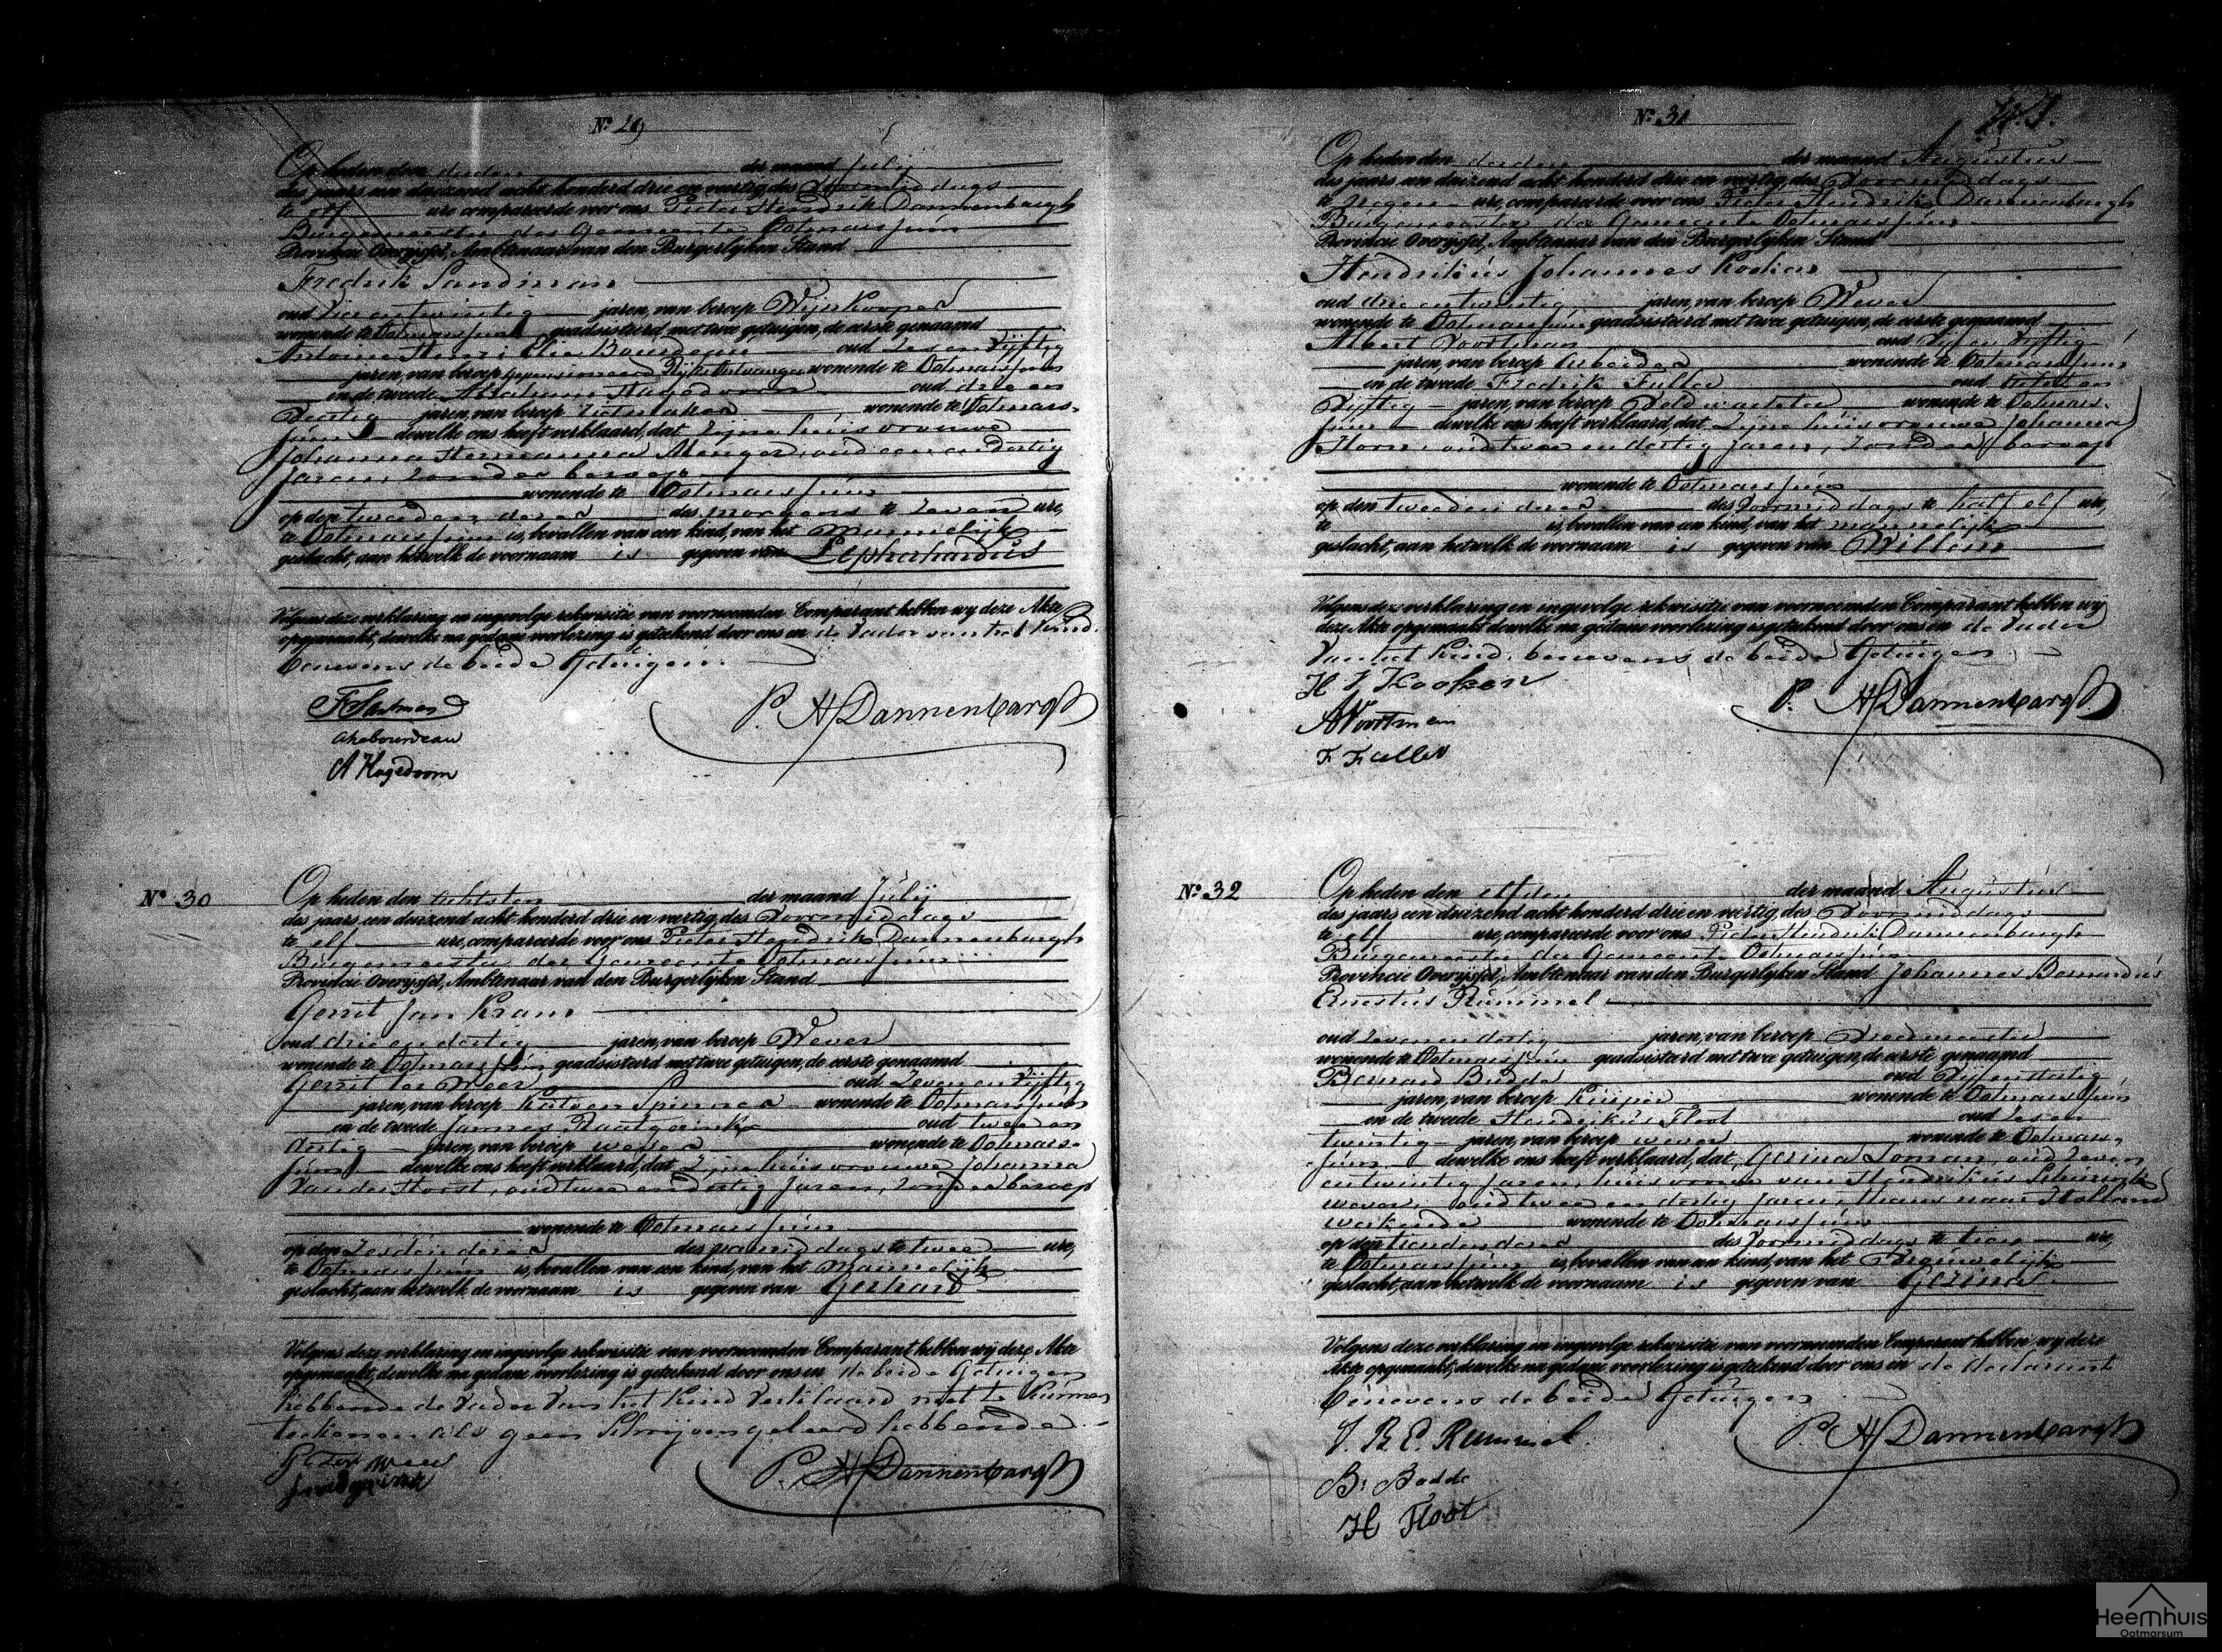 Nº 29
Op heden den derden der maand Julij
des jaars een duizend acht honderd drie en veertig, des Voormiddags
te elf ure compareerde voor ons Pieter Hendrik Dannenbargh
Burgemeester der Gemeente Ootmarssum
Provincie Overijssel, Ambtenaar van den Burgerlyken Stand
Fredrik
oud Vierentwintig jaren, van beroep Wijnkooper
wonende te Ootmarssum geadsisteerd met twee getuigen, de eerste genaamd
Antoine Henri Elie Bourdeau oud Zes en Vijftig
jaren, van beroep gepensioneerd Rijks Ontvanger wonende te Ootmarssum
en de tweede Abraham Hagedoorn oud drie en
Veertig jaren, van beroep wonende te Ootmars-
sum dewelke ons heeft verklaard, dat Zijne huisvrouwe
Johanna Hermanna Menger, oud een en dertig
Jaren, Zonder beroep
wonende te Ootmarssum
op den tweeden dezer des morgens te Zeven ure,
te Ootmarssum is bevallen van een kind, van het Mannelijk
geslacht, aan hetwelk de voornaam is gegeven van
Volgens deze verklaring en ingevolge rekwisitie van voornoemden Comparant hebben wy deze Akte
opgemaakt, dewelke na gedane voorlezing is getekend door ons en de Vader van het Kind.
benevens de beide Getuigen.
ahebourdeau
A Hagedoorn
P. H Dannenbargh
Nº 30
Op heden den achtsten der maand Julij
des jaars een duizend acht honderd drie en veertig, des Voormiddags
te elf ure, compareerde voor ons Pieter Hendrik Dannenbargh
Burgemeester der Gemeente Ootmarssum
Provincie Overijssel, Ambtenaar van den Burgerlyken Stand
Gerrit Jan Kram
oud drie en dertig jaren, van beroep Wever
wonende te Ootmarssum geadsisteerd met twee getuigen, de eerste genaamd
Gerrit ter Weer oud Zeven en Vijftig
jaren, van beroep Katoen Spinner wonende te Ootmarssum
en de tweede Jannes oud twee en
dertig jaren, van beroep wever wonende te Ootmars-
sum dewelke ons heeft verklaard, dat Zijne huisvrouwe Johanna
Van der Horst, oud twee en dertig Jaren, Zonder beroep
wonende te Ootmarssum
op den Zesden dezer des namiddags te twee ure,
te Ootmarssum is bevallen van een kind, van het Mannelijk
geslacht, aan hetwelk de voornaam is gegeven van Gerhard
Volgens deze verklaring en ingevolge rekwisitie van voornoemden Comparant hebben wij deze Akte
opgemaakt, dewelke na gedane voorlezing is getekend door ons en de beide Getuigen
hebbende de Vader Van het Kind Verklaard niet te kunnen
teekenen als geen Schrijven geleerd hebbende.
G Ter Weer
P. H Dannenbargh
Nº 31
Op heden den derden der maand Augustus
des jaars een duizend acht honderd drie en veertig, des Voormiddags
te Negen ure, compareerde voor ons Pieter Hendrik Dannenbargh
Burgemeester der Gemeente Ootmarssum
Provincie Overijssel, Ambtenaar van den Burgerlyken Stand
Hendrikus Johannes
oud drie entwintig jaren, van beroep Wever
wonende te Ootmarssum geadsisteerd met twee getuigen, de eerste genaamd
Albert Voortman oud Vijf en Vijftig
jaren, van beroep Arbeider wonende te Ootmarssum
en de tweede Fredrik Fuller oud
Vijftig jaren, van beroep Veldwachter wonende te Ootmars-
sum dewelke ons heeft verklaard, dat Zijne huisvrouwe Johanna
oud twee en dertig Jaren, Zonder beroep
wonende te Ootmarssum
op den tweeden dezer des Voormiddags te half elf ure,
te is bevallen van een kind, van het mannelijk
geslacht, aan hetwelk de voornaam is gegeven van Willem
Volgens deze verklaring en ingevolge rekwisitie van voornoemden Comparant hebben wij
deze Akte opgemaakt dewelke na gedane voorlezing is getekend door ons en de Vader
Van het Kind. benevens de beide Getuigen.
A Voortman
F Fuller
P. H Dannenbargh
Nº 32
Op heden den elfden der maand Augustus
des jaars een duizend acht honderd drie en veertig, des Voormiddags
te elf ure, compareerde voor ons Pieter Hendrik Dannenbargh
Burgemeester der Gemeente Ootmarssum
Provincie Overijssel, Ambtenaar van den Burgerlyken Stand Johannes Bernardus
Ernestus Rummel
oud Zeven en dertig jaren, van beroep Vroedmeester
wonende te Ootmarssum geadsisteerd met twee getuigen, de eerste genaamd
Bernard Budde oud Vijf en dertig
jaren, van beroep Kuiper wonende te Ootmarssum
en de tweede Hendrikus Floot oud Zeven
twintig jaren, van beroep wever wonende te Ootmars-
sum dewelke ons heeft verklaard, dat Gezina Loman oud Zeven
entwintig Jaren, huisvrouw van Hendrikus
wever oud twee en dertig Jaren, thans naar Holland
werkende wonende te Ootmarssum
op den tienden dezer des Voormiddags te tien ure,
te Ootmarssum is bevallen van een kind, van het Vrouwelijk
geslacht, aan hetwelk de voornaam is gegeven van Gezina
Volgens deze verklaring en ingevolge rekwisitie van voornoemden Comparant hebben wy deze
Akte opgemaakt, dewelke na gedane voorlezing is getekend door ons en de declarant
benevens de beide Getuigen
J. B. E. Rummel
B. Budde
H Floot
P. H Dannenbargh
Heemhuis
Ootmarsum